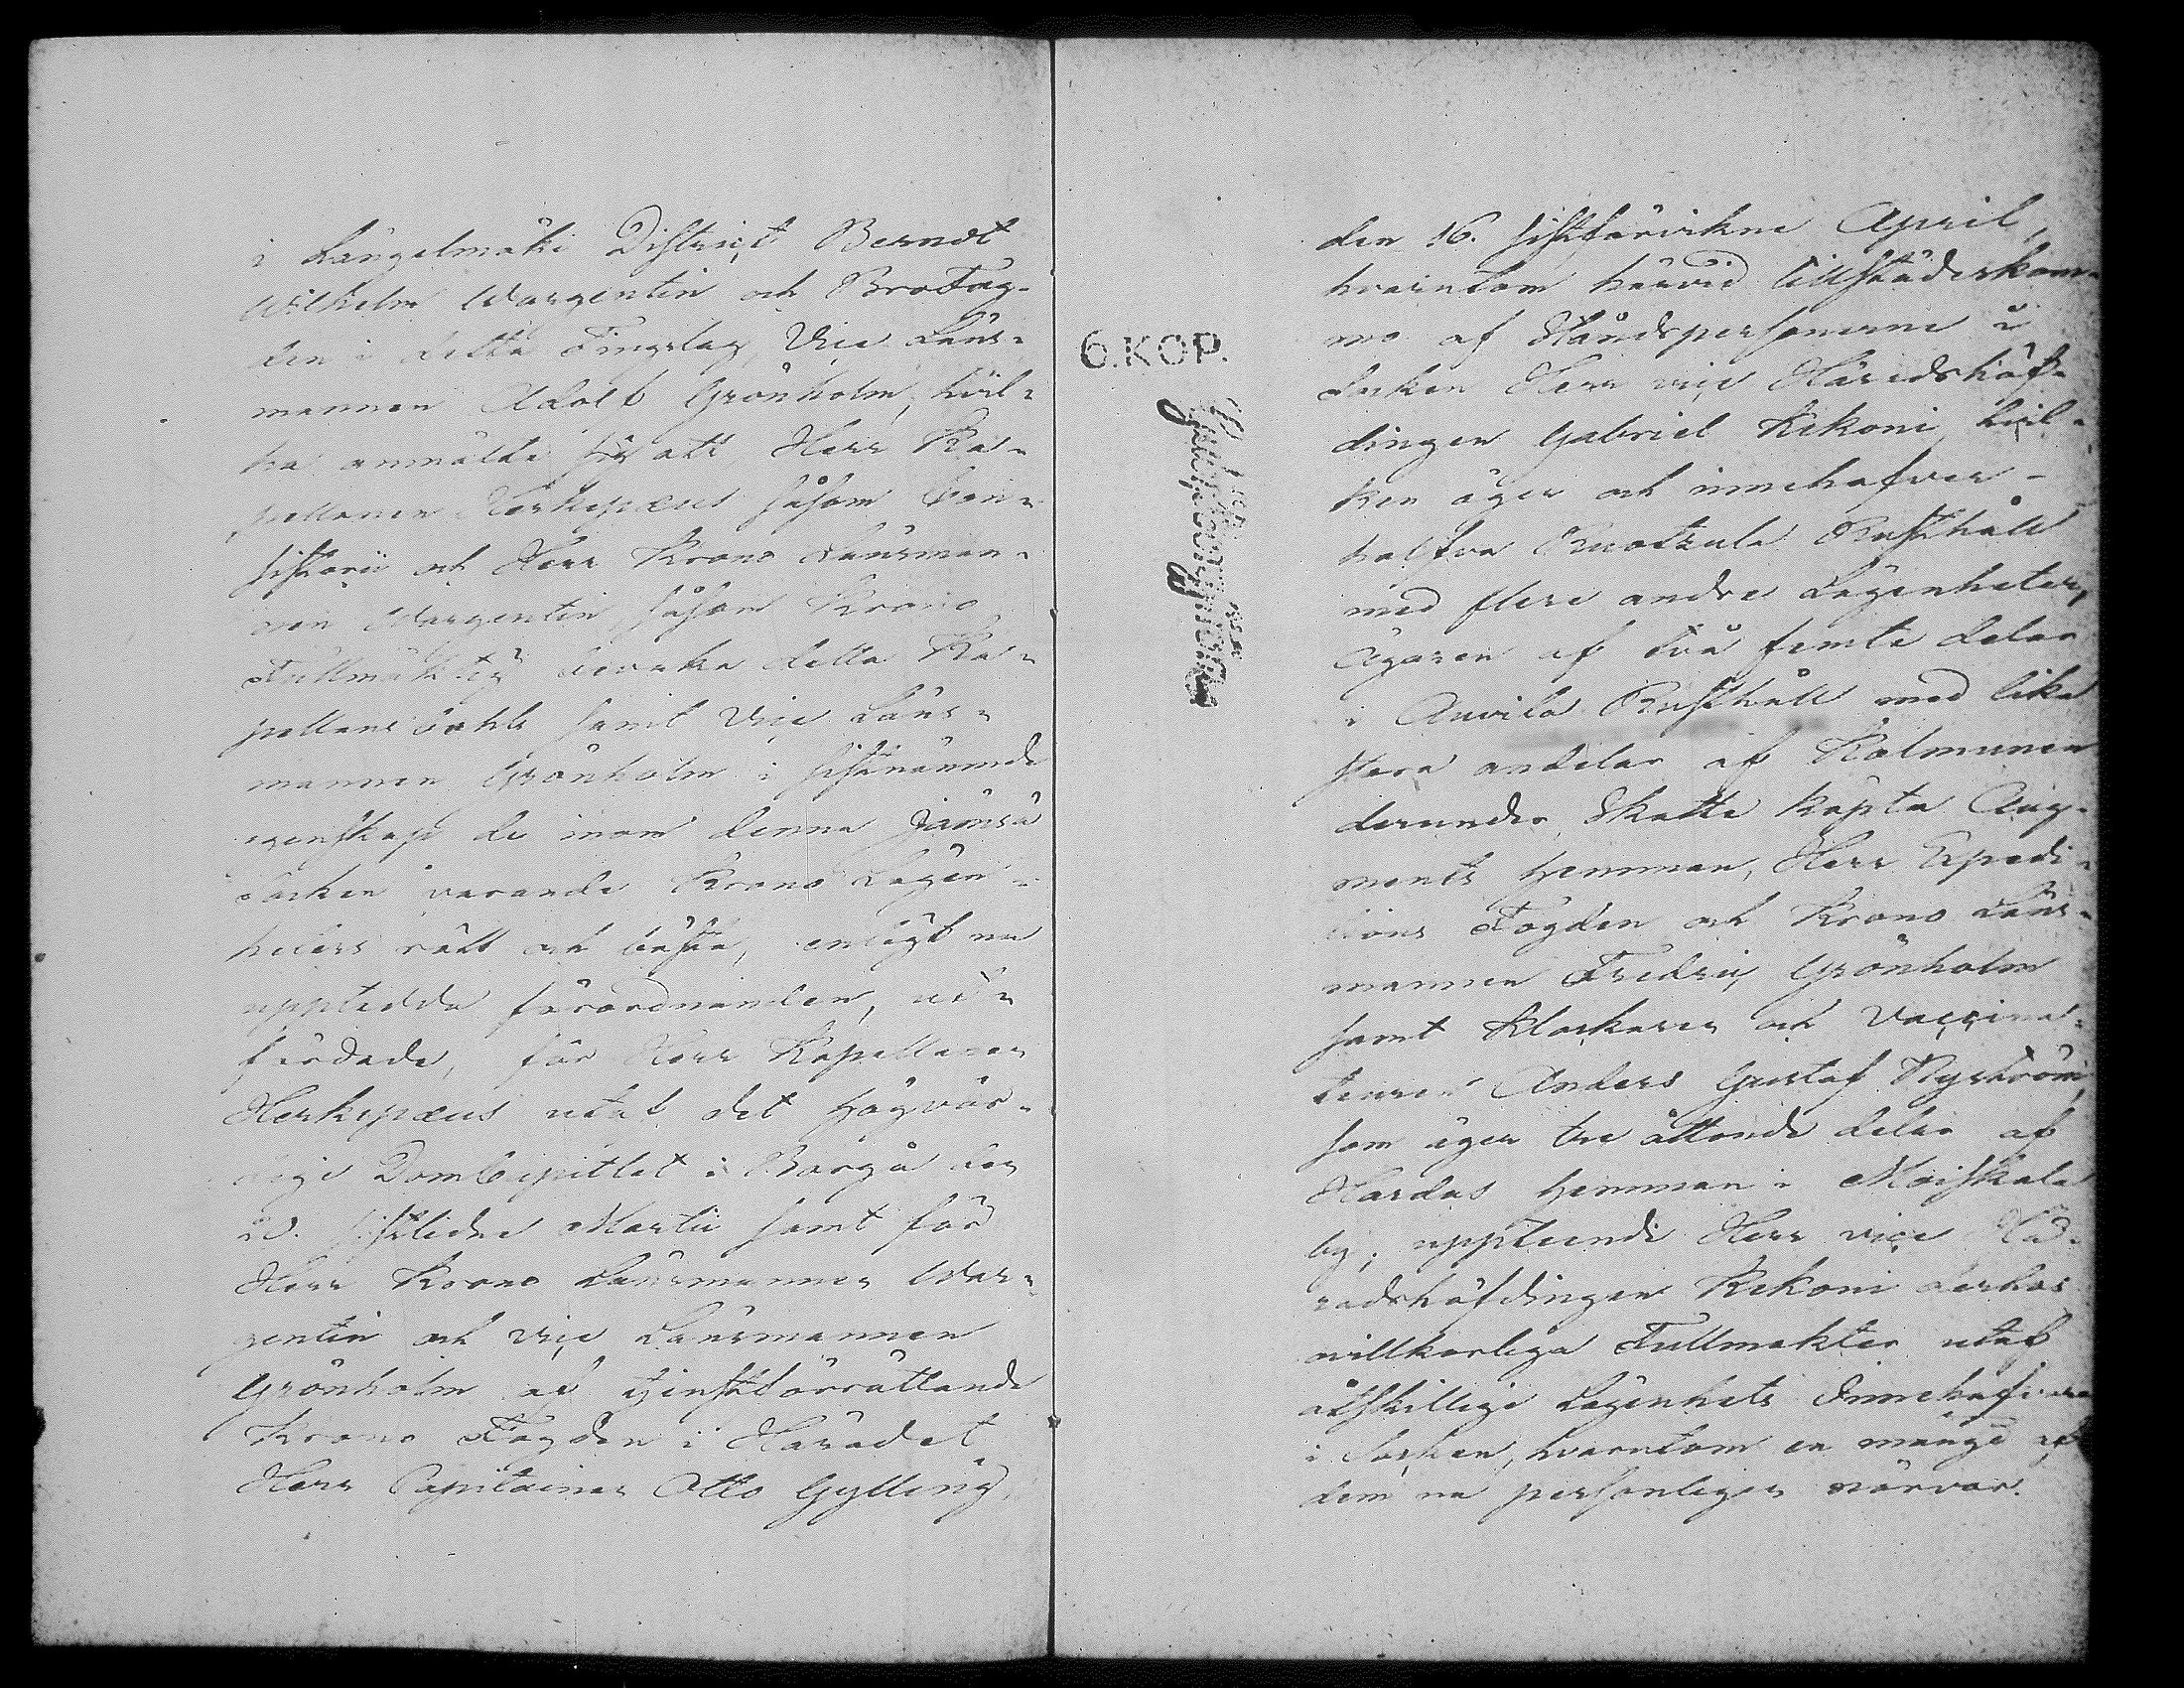 i Längelmäki District Berndt
Wilhelm Wargentin och BroFog-
den i detta Tingslag, Vice Läns-
mannen Adolf Grönholm, hvil-
ka anmälte sig att Herr Ka-
pellanen Herkepæus såsom Con-
sistorii och Herr Krono Länsman-
nen Wargentin såsom Krono
Fullmäktig bevaka detta Ka-
pellans samt Vice Läns-
mannen Grönholm i sistnämnde
egenskap de inom denna Jämsä
Socken varande Krono Lägen-
heters rätt och bästa, enligt nu
upptedda förordnanden, ut-
färdade, för Herr Kapellanen
Herkepæus utaf det Högvör-
dige DomCapitlet i Borgå den
20. sistledne Martii samt för
Herr Krono Länsmannen War-
gentin och vice Länsmannen
Grönholm af tjenstförrättande
Krono Fogden i Häradet
Herr Capitainen Otto Gylling,
6.KOP.
den 16. sistförvikne April,
hvarutom härvid tillstädeskom-
mo af Ståndspersonerne i
Socken Herr vice Häradshöf-
dingen Gabriel Kekoni, hvil-
ken äger och innehafver
halfva Ruotsula Rusthåll
med flere andre Lägenheter,
Ägaren af två femte delar
i Auvila Rusthåll med lika
stora andelar af Kolmunen
derunder Skatte köpta Aug-
ments Hemman, Herr Expedi-
tions Fogden och Krono Läns-
mannen Fredric Grönholm
samt Klockaren och Vaccina-
teuren Anders Gustaf Nyström,
som äger tre åttonde delar af
Hardus Hemman i Moiskala
by; uppteende Herr vice Hä-
radshöfdingen Kekoni derhos
villkorliga Fullmakter utaf
åtskillige Lägenhets Innehafvare
i Socken, hvarutom en mängd af
dem nu personligen närvar.